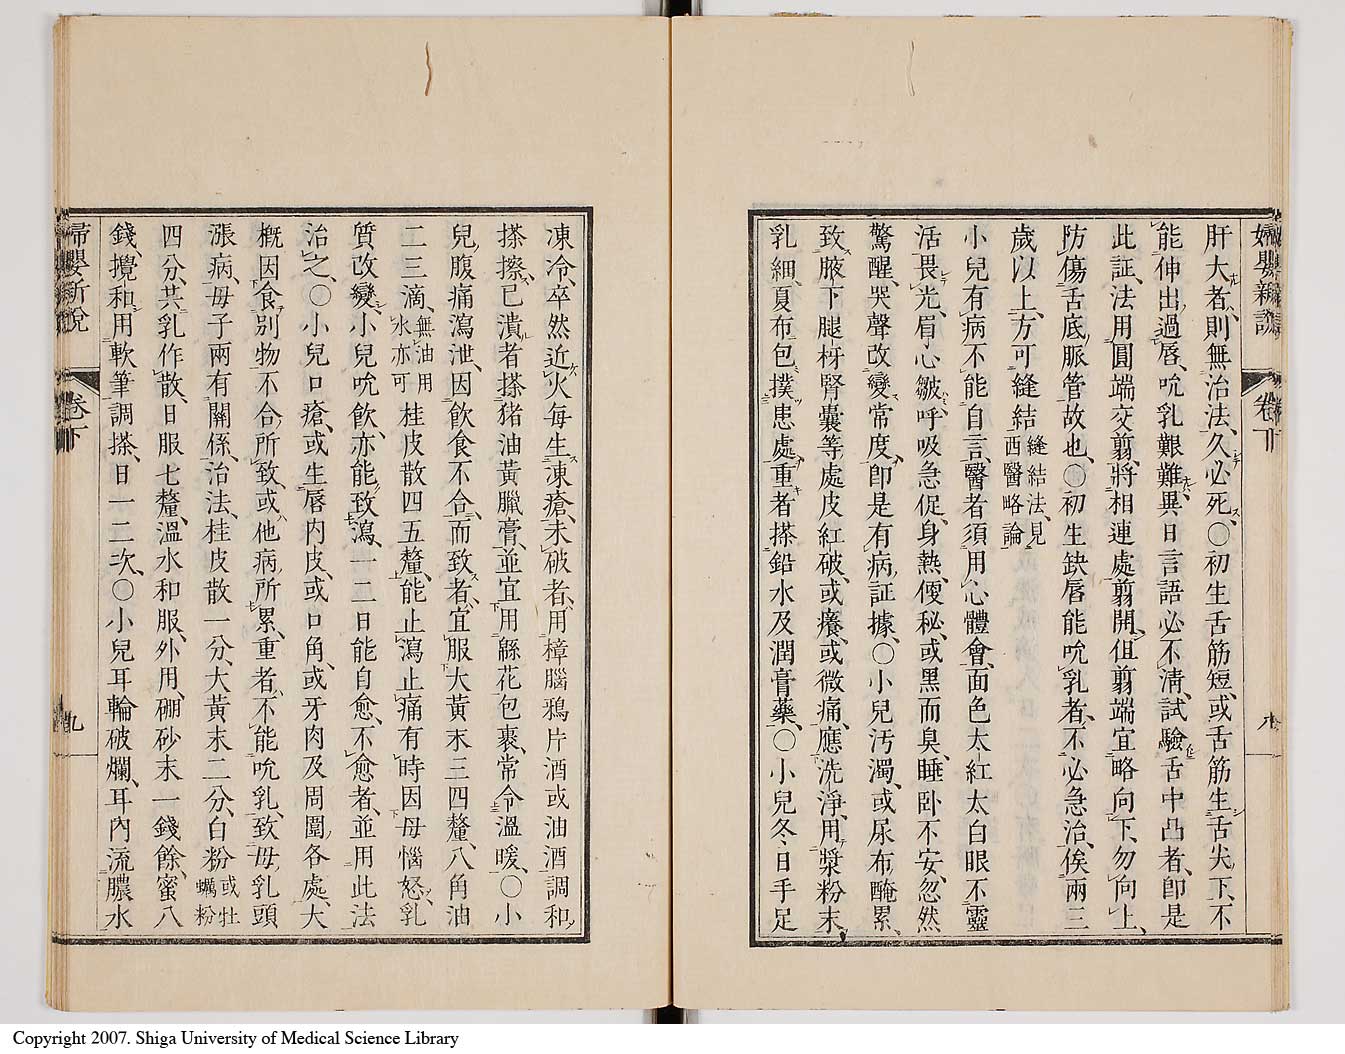 婦嬰新說
卷下
八
肝大者、則無治法、久必死、〇初生舌筋短、或舌筋生舌尖下、不
能伸出過唇、吮乳艱難、異日言語必不清、試驗舌中凸者、卽是
此証、法用圓端交剪、將相連處剪開、但剪端宜略向下、勿向上、
防傷舌底脈管故也、〇初生缺唇能吮乳者、不必急治、俟兩三
歲以上、方可縫結縫結法、見西醫略論
小兒有病不能自言、醫者須用心體會、面色太紅太白、眼不靈
活、畏光、眉心皺、呼吸急促、身熱、便秘、或黑而臭、睡卧不安、忽然
驚醒、哭聲改變常度、卽是有病証據、〇小兒汚濁、或尿布醃累、
致腋下腿枒腎囊等處皮紅破、或癢、或微痛、應洗淨、用漿粉末、
乳細、夏布包、撲患處、重者搽鉛水及潤膏藥、〇小兒冬日手足
凍冷、卒然近火、每生凍瘡、未破者、用樟腦鴉片酒或油酒調和
搽擦、已潰者搽猪油黃臘膏、並宜用緜花包裹、常令溫暖、〇小
兒腹痛瀉泄、因飲食不合、而致者、宜服大黃末三四釐、八角油
二三滴、無油用水亦可桂皮散四五釐、能止瀉止痛、有時因母惱怒、乳
質改變、小兒吮飲、亦能致瀉、一二日能自愈、不愈者、並用此法
治之、〇小兒口瘡、或生唇内皮、或口角、或牙肉及周圍各處、大
概因食別物不合所致、或他病所累、重者、不能吮乳、致母乳頭
漲病、母子兩有關係、治法、桂皮散一分、大黃末二分、白粉或牡蠣粉
四分、共乳作散、日服七釐、溫水和服、外用、硼砂末一錢餘、蜜八
錢、攪和、用軟筆調搽、日一二次、〇小兒耳輪破爛、耳內流膿水
婦嬰新說
卷下
九
Copyright 2007. Shiga University of Medical Science Library